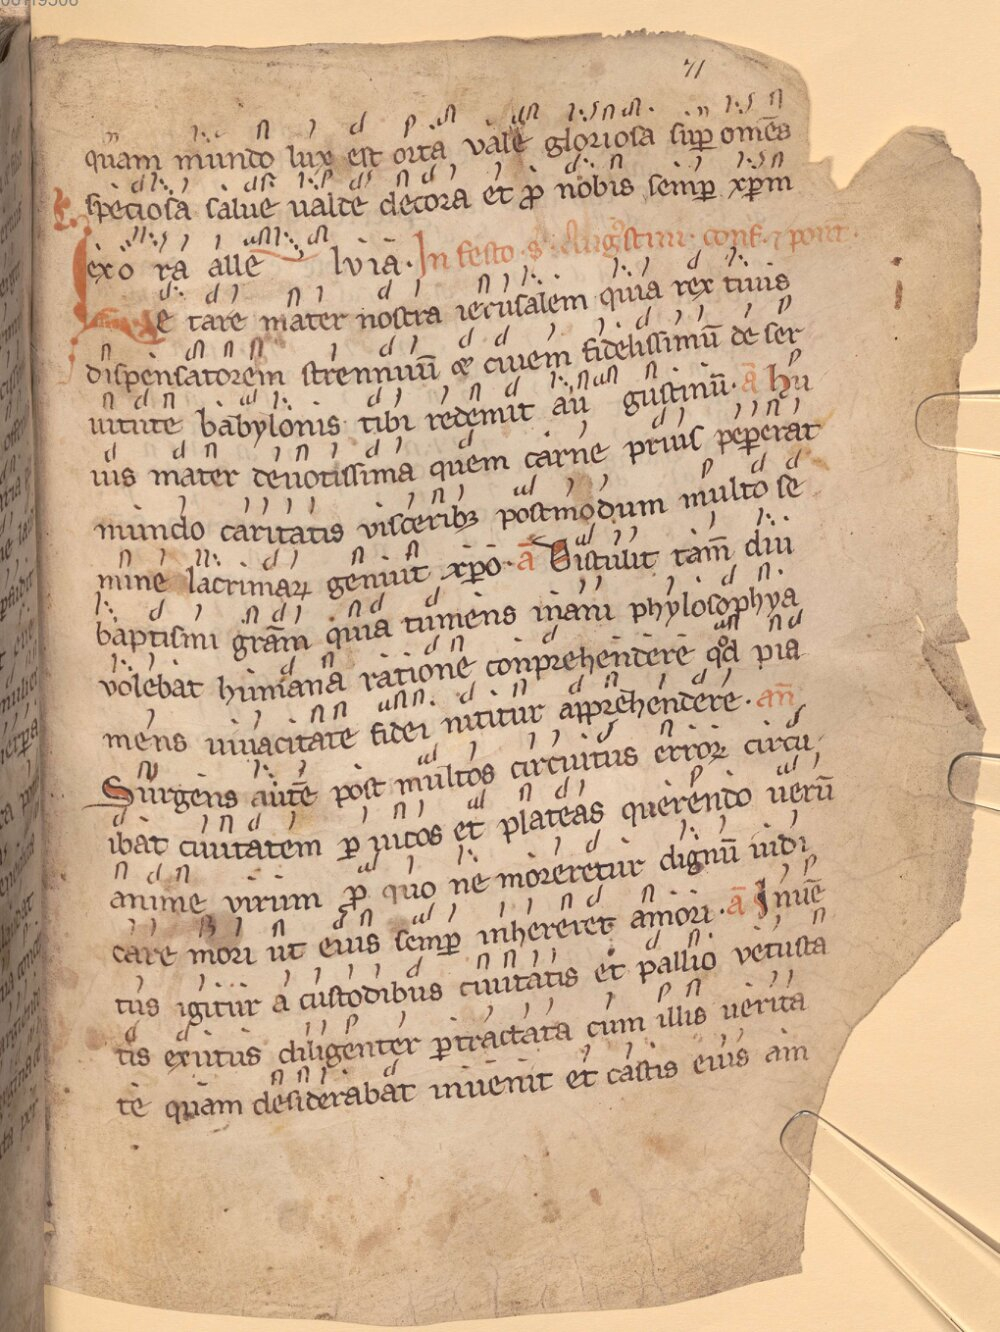 71
quam mundo lux est orta vale gloriosa sup omēs
speciosa salue ualde decora et ꝓ nobis semꝑ xp̄m
exo ra alle luia. In festo s̄ augꝯstini conf. ⁊ pont.
Le tare mater nostra ierusalem quia rex tuus
dispensatorem strennuū & ciuem fidelissimū de ser
uitute babylonis tibi redemit au gustinū. ā hu
ius mater deuotissima quem carne prius peꝑerat
mundo caritatis visceribꝫ postmodum multo se
mine lacrimaꝝ genuit xp̄o. ā Distulit tam̄ diu
baptismi grām quia tumens inani phylosophya
volebat humana ratione conprehendere qd̄ pia
mens uiuacitate fidei nititur apprehendere. an̄
Surgens autē post multos circuitus erroꝝ circu
ibat ciuitatem ꝑ uicos et plateas querendo uerū
anime virum ꝓ quo ne moreretur dignū iudi
care mori ut eius semꝑ inhereret amori. ā Inuē
tus igitur a custodibus ciuitatis et pallio vetusta
tis exutus diligenter ꝑtractata cum illis uerita
te quam desiderabat inuenit et castis eius am